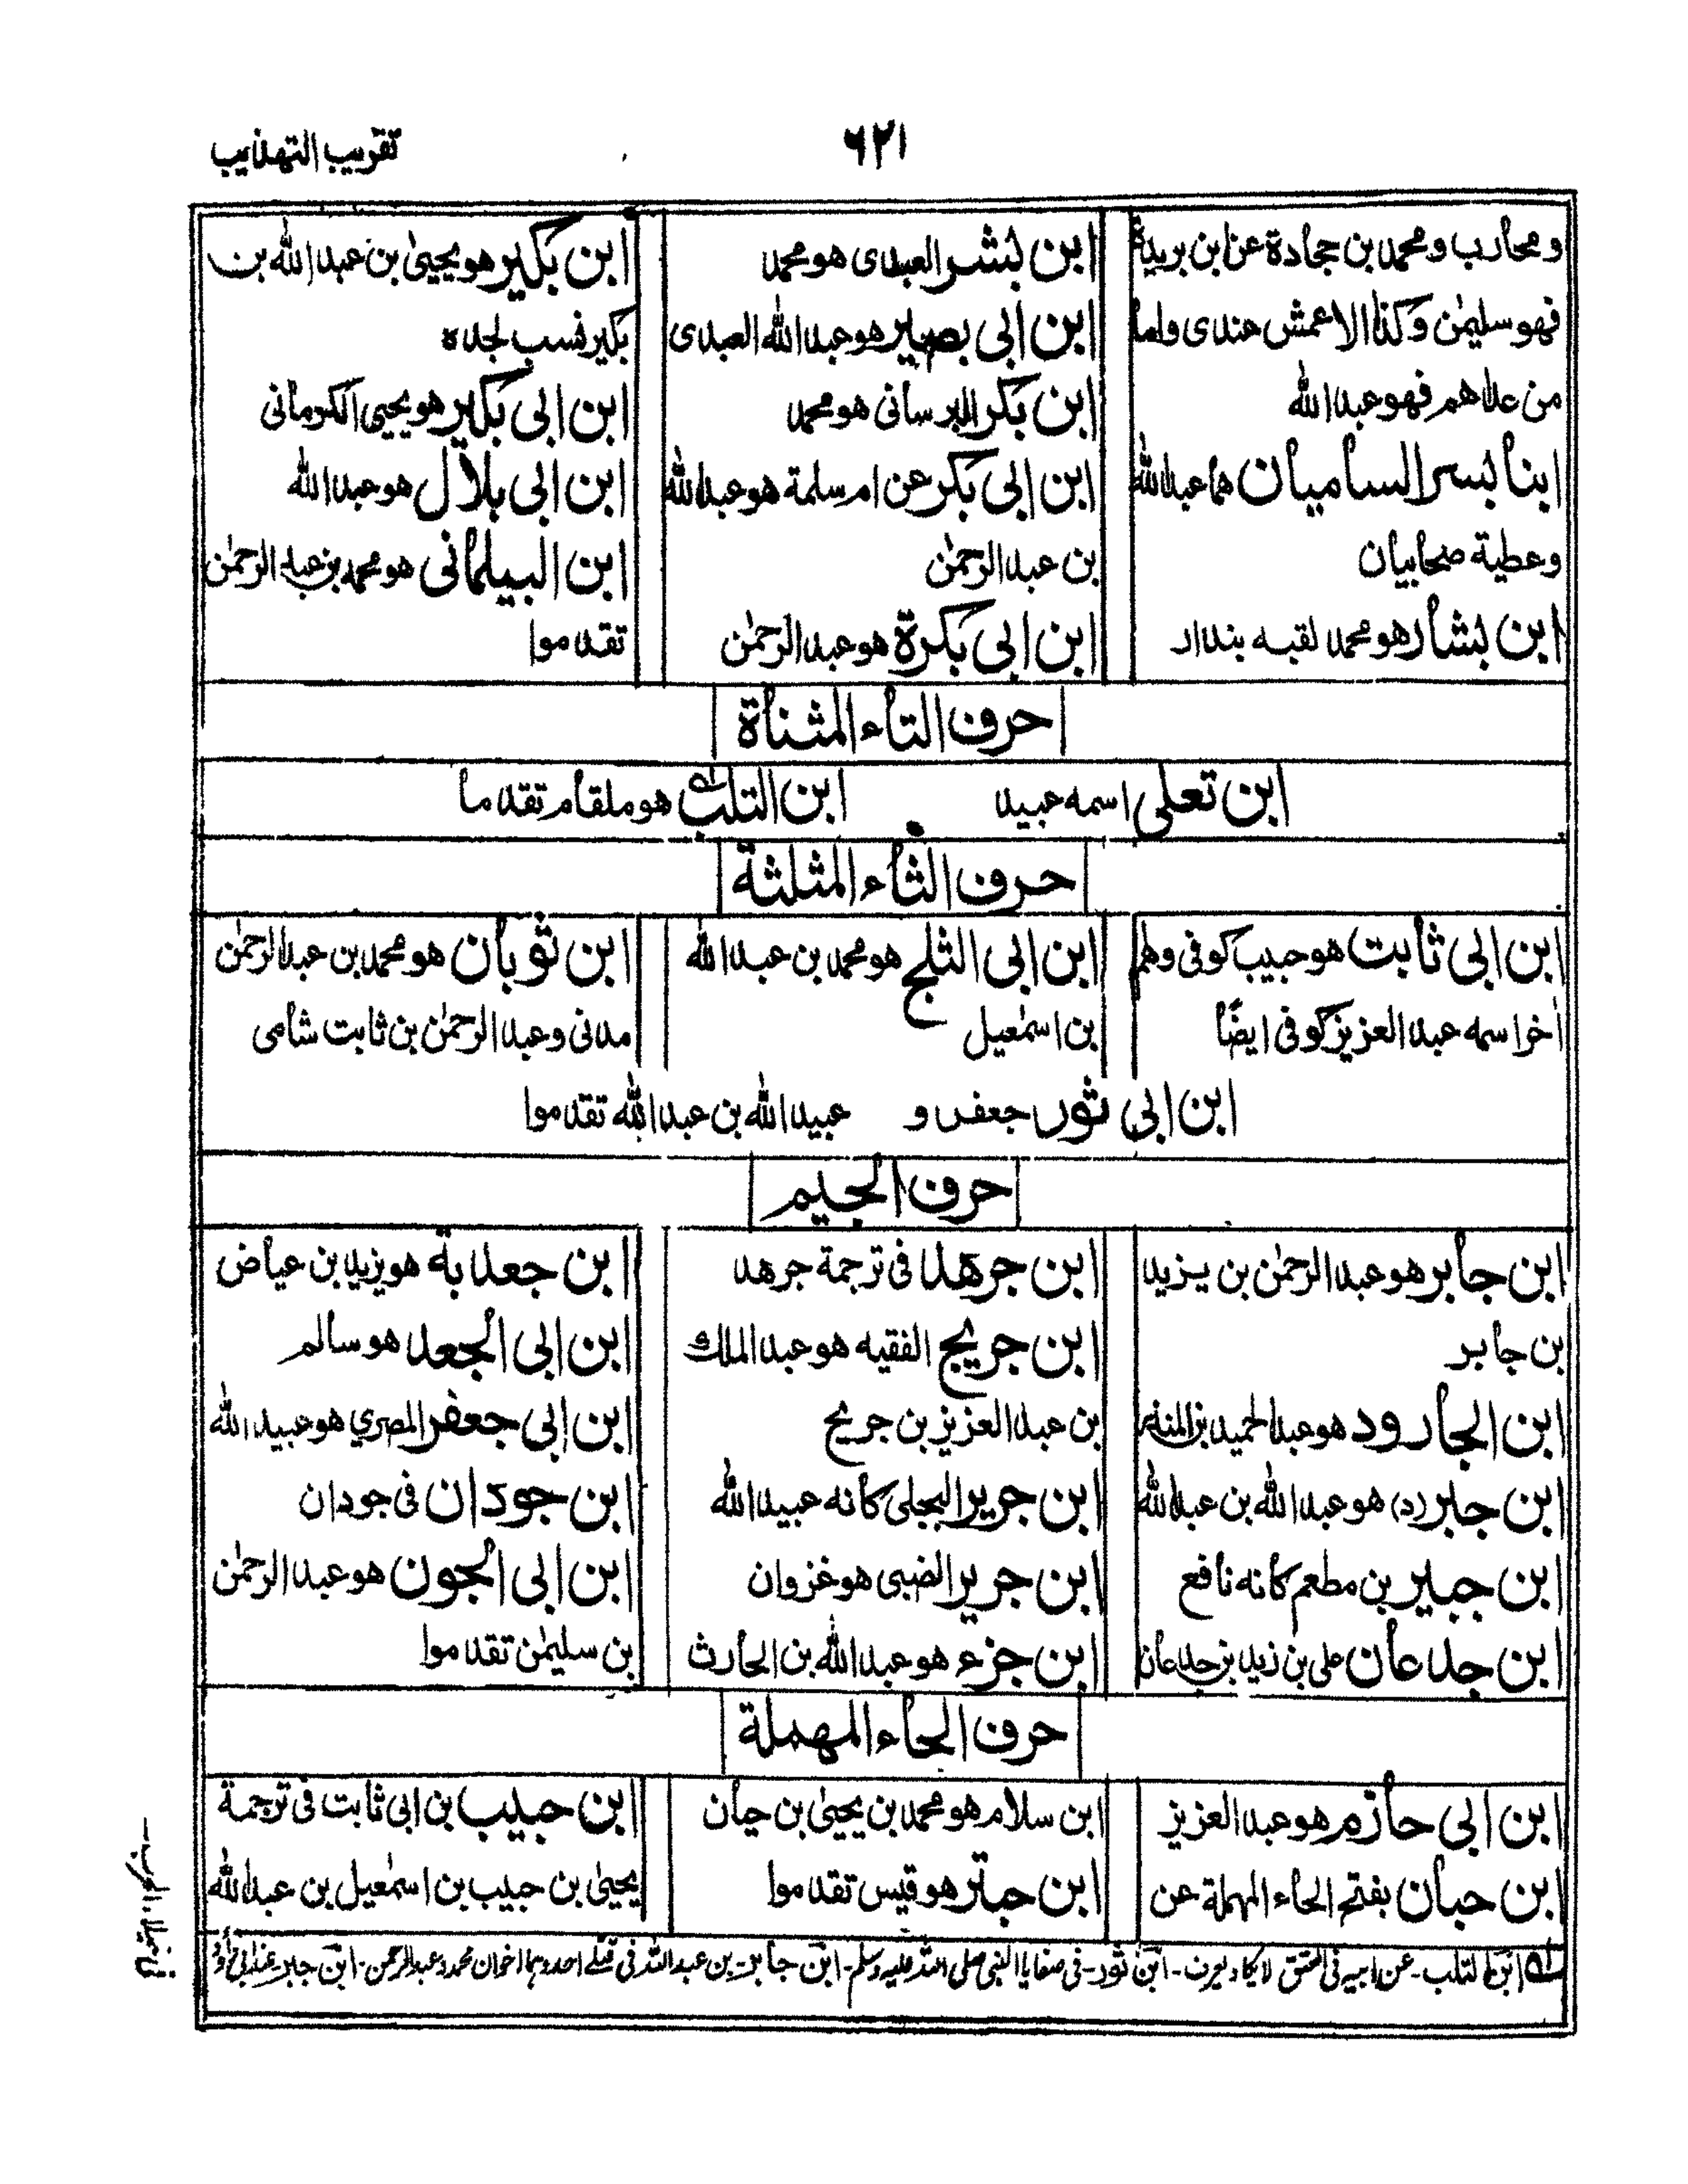 ٦٢١
تقريب التهذيب
ومحارب ومحمد بن جحادة عن ابن بريدة
فهو سليمٰن وكذا الاعمش عندى واما
من عداهم فهو عبد الله
ابنا بسر السلميان هما عبد الله
وعطية صحابيان
ابن بشار هو محمد لقبه بندار
ابن بشر العبدى هو محمد
ابن ابى بصير هو عبد الله العبدى
ابن بكر البرسانى هو محمد
ابن ابى بكر عن ام سلمة هو عبد الله
بن عبد الرحمٰن
ابن ابى بكرة هو عبد الرحمٰن
ابن بكير هو يحيىٰ بن عبد الله بن
بكير نسب لجده
ابن ابى بكير هو يحيى الكرمانى
ابن ابى بلال هو عبد الله
ابن البيلمانى هو محمد بن عبد الرحمٰن
تقدموا
حرف التاء المثناة
ابن تعلى اسمه عبيد
ابن التلب هو ملقام تقدما
حرف الثاء المثلثة
ابن ابى ثابت هو حبيب كوفى ولهم
اٰخر اسمه عبد العزيز كوفى ايضًا
ابن ابى الثلج هو محمد بن عبد الله
بن اسمٰعيل
ابن ثوبان هو محمد بن عبد الرحمٰن
مدنى وعبد الرحمٰن بن ثابت شامى
ابن ابى ثور جعفر و عبيد الله بن عبد الله تقدموا
حرف الجيم
ابن جابر هو عبد الرحمٰن بن يزيد
بن جابر
ابن الجارود هو عبد الحميد بن المنذر
ابن جابر (د) هو عبد الله بن عبد الله
ابن جبير بن مطعم كانه نافع
ابن جدعان على بن زيد بن جدعان
ابن جرهد فى ترجمة جرهد
ابن جريج الفقيه هو عبد الملك
بن عبد العزيز بن جريج
ابن جرير البجلى كانه عبيد الله
ابن جرير الضبى هو غزوان
ابن جزء هو عبد الله بن الحارث
ابن جعدبة هو يزيد بن عياض
ابن ابى الجعد هو سالم
ابن ابى جعفر المصري هو عبيد الله
ابن جودان فى جودان
ابن ابى الجون هو عبد الرحمٰن
بن سليمٰن تقدموا
حرف الحاء المهملة
ابن ابى حازم هو عبد العزيز
ابن حبان بفتح الحاء المهملة عن
ابن سلام هو محمد بن يحيىٰ بن حبان
ابن حبتر هو قيس تقدموا
ابن حبيب بن ابى ثابت فى ترجمة
يحيىٰ بن حبيب بن اسمٰعيل بن عبد الله
ابن التلب - عن ابيه فى العتق لا يكاد يعرف - ابن ثور - فى صفايا النبى صلى الله عليه وسلم - ابن جابر - بن عبد الله فى قتلے احد وهما اخوان محمد وعبد الرحمن - ابن جابر عند ابى